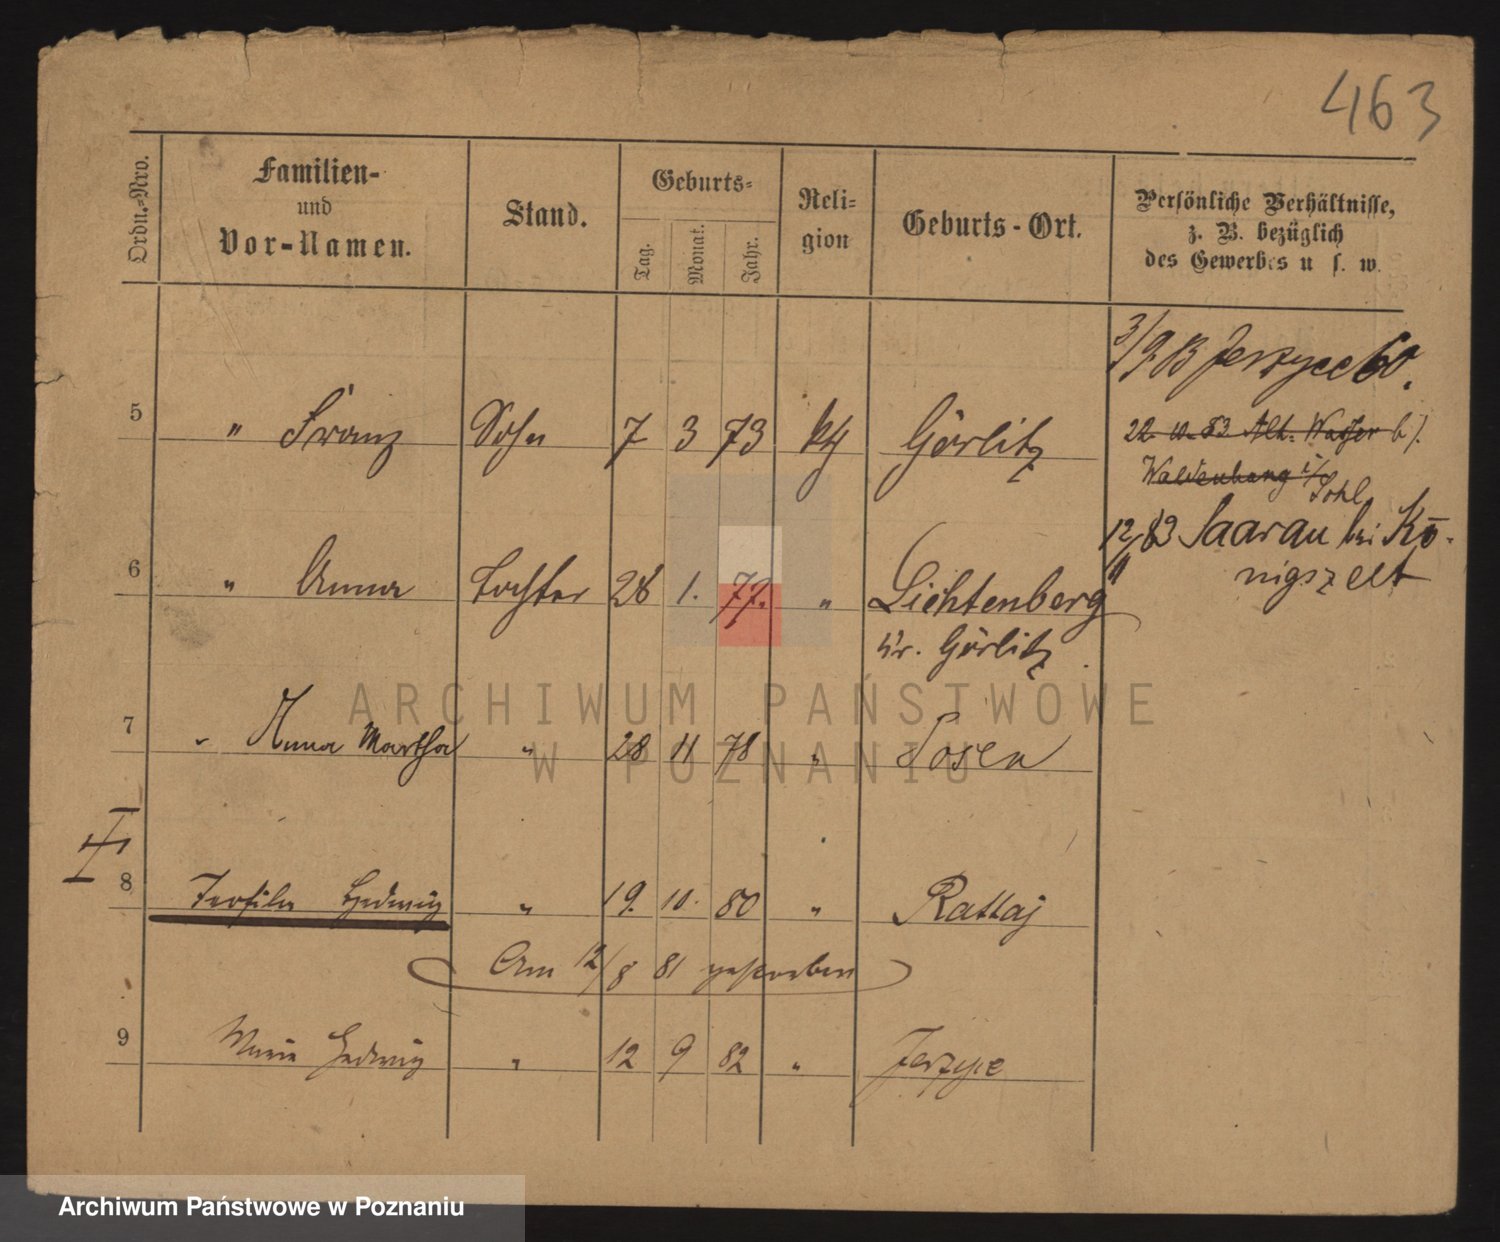 463
Ordn.-Nro.
Familien-
und
Vor-Namen.
Stand.
Geburts-
Tag.
Monat.
Jahr.
Reli-
gion
Geburts-Ort.
Persönliche Verhältnisse,
z. B. bezüglich
des Gewerbes u s. w.
3/9 83 Jerzyce 60.
5 " Franz Sohn 7 3 73 kth Görlitz
22 10 83 Alt-Wasser b/.
Waldenburg i/Schl
12/11 83 Saarau bei Kö-
nigszelt
6 " Anna Tochter 28 1. 77. " Lichtenberg
Kr. Görlitz
7 " Anna Martha " 28 11 78 " Posen
8 Teofila Hedwig " 19. 10. 80 " Rattaj
Am 12/8 81 gestorben
9 Marie Hedwig " 12 9 82 " Jerzyce
ARCHIWUM PAŃSTWOWE
W POZNANIU
Archiwum Państwowe w Poznaniu